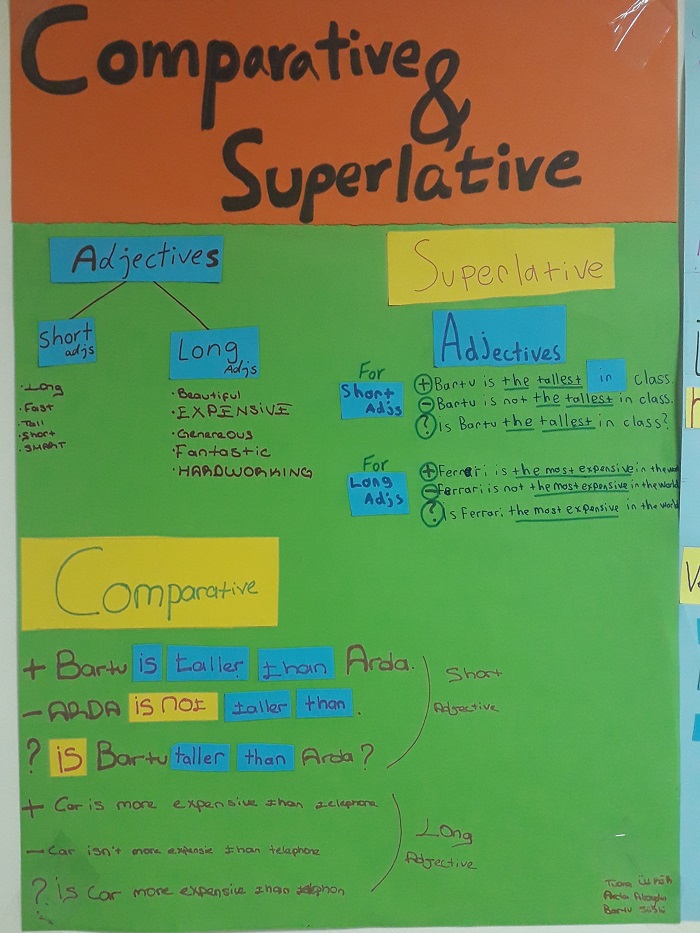 Comparative
&
Superlative
Adjectives
Short
adjs
Long
Adjs
• Long
• Fast
• Tall
• Short
• SMART
• Beautiful
• EXPENSIVE
• Genereous
• Fantastic
• HARDWORKING
Superlative
Adjectives
For
Short
Adjs
+ Bartu is the tallest in class.
- Bartu is not the tallest in class.
? Is Bartu the tallest in class?
For
Long
Adjs
+ Ferrari is the most expensive in the wor
- Ferrari is not the most expensive in the world
? Is Ferrari the most expensive in the world
Comparative
+ Bartu is taller than Arda.
- ARDA is not taller than.
? is Bartu taller than Arda?
Short
Adjective
+ Car is more expensive than telephone
- Car isn't more expensie than telephone
? is Car more expensive than telephon
Long
Adjective
Arda
Bartu